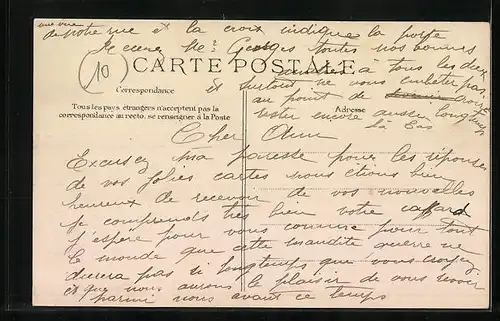 une vue
de notre rue et la croix indique la porte
Recevez Mr Georges toutes nos bonnes
amitiés à tous les deux
10
CARTE POSTALE
et surtout ne vous embêter pas
Correspondance
au point de croire
Tous les pays étrangers n'acceptent pas la
correspondance au recto, se renseigner à la Poste
Adresse
rester encore aussi longtemps
là bas
Cher Ami
Excusez ma paresse pour les réponses
de vos jolies cartes nous étions bien
heureux de recevoir de vos nouvelles
je comprends très bien votre caffard
j'espère pour vous comme pour tout
le monde que cette maudite guerre ne
durera pas si longtemps que vous croyez
et que nous aurons le plaisir de vous revoir
parmi nous avant ce temps